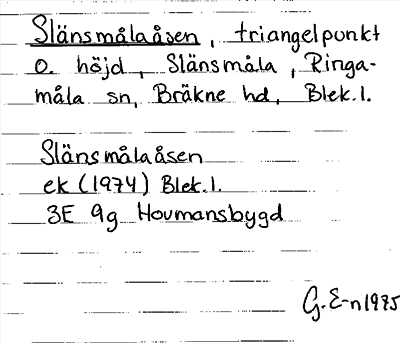 Slänsmålaåsen, triangelpunkt
o. höjd, Slänsmåla, Ringa-
måla sn, Bräkne hd, Blek.l.
Slänsmålaåsen
ek (1974) Blek.l.
3E 9g Hovmansbygd
G. E-n 1975